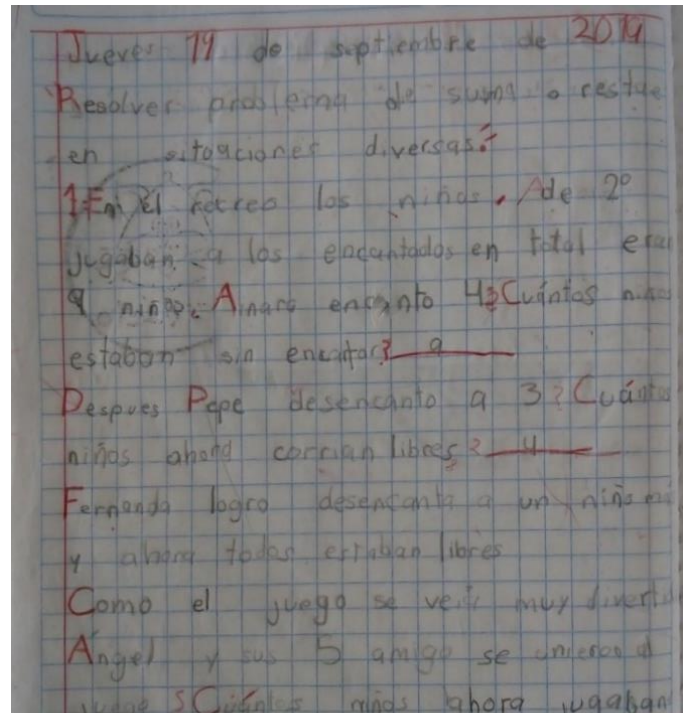 Jueves 19 de septiembre de 2019
Resolver problema de suma o resta
en situaciones diversas?
1. En el recreo los niños. A de 2º
jugaban a los encantados en total eran
9 niños. Ainara encanto 4 ¿Cuántos niños
estaban sin encantar? 9
Despues Pepe desencanto a 3 ? Cuántos
niños ahora corrian libres? 4
Fernanda logro desencanta a un niño
y ahora todos estaban libres
Como el juego se veia muy diverti
Angel y sus 5 amigo se unieron al
juego ¿Cuántos niños ahora jugaban